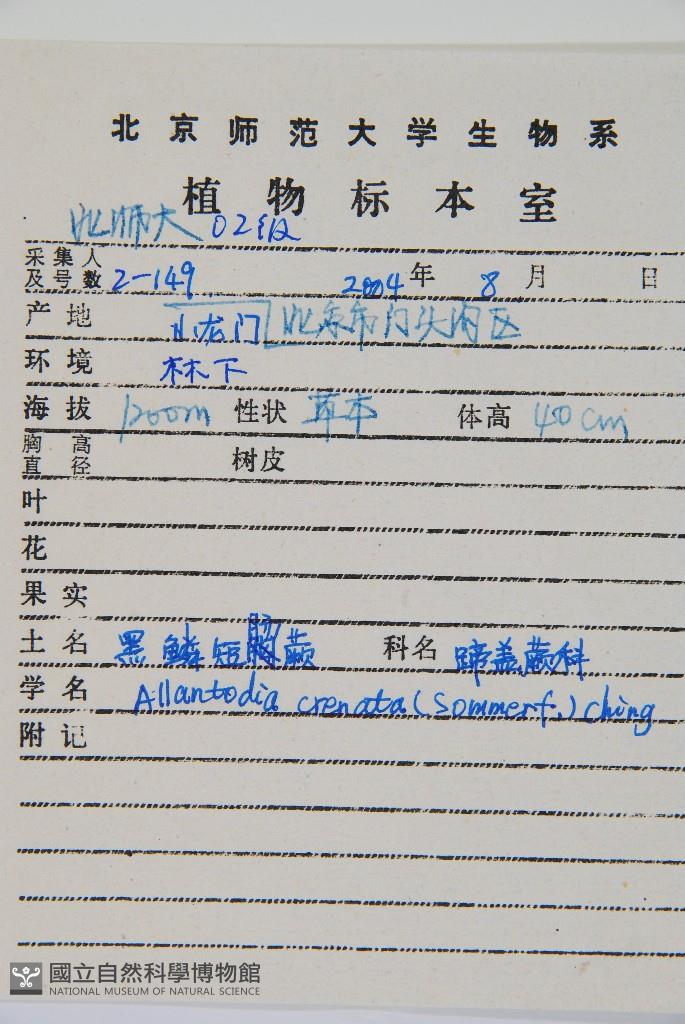 北京师范大学生物系
植物标本室
北师大 02级
采集人及号数 2-149 2004年 8月 日
产地 小龙门 北京市门头沟区
环境 林下
海拔 1200m 性状 草本 体高 40cm
胸高直径 树皮
叶
花
果实
土名 黑鳞短肠蕨 科名 蹄盖蕨科
学名 Allantodia crenata (Sommerf.) Ching
附记
國立自然科學博物館
NATIONAL MUSEUM OF NATURAL SCIENCE